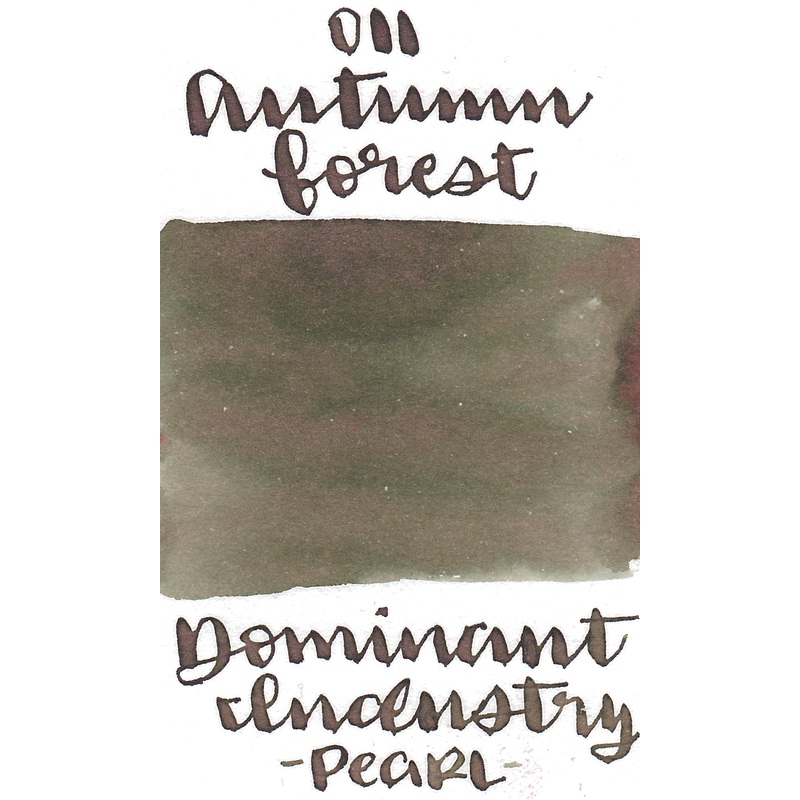 011
Autumn
forest
Dominant
Industry
-PEARL-